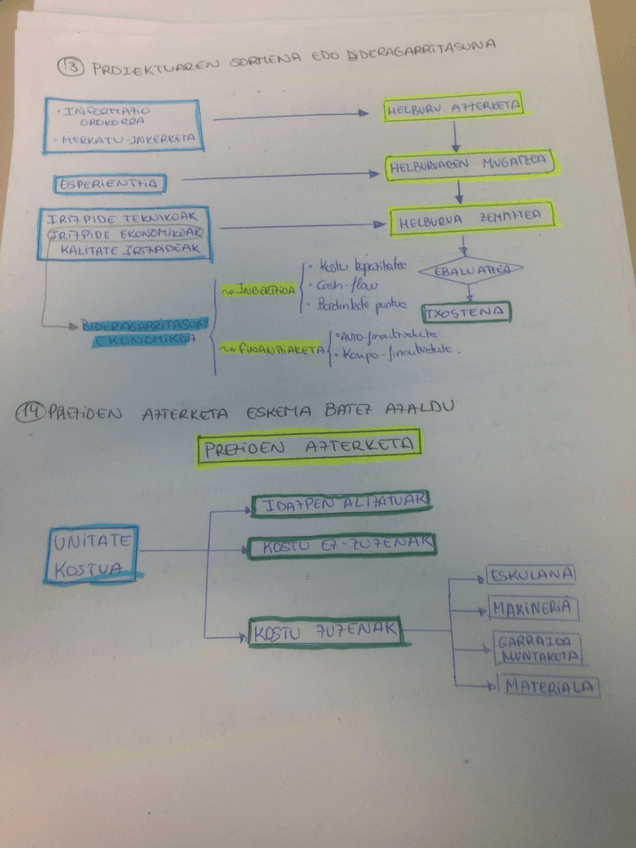 13 PROIEKTUAREN SORMENA EDO BIDERAGARRITASUNA
· INFORMAZIO
OROKORRA
· MERKATU-IKERKETA
HELBURU AZTERKETA
ESPERIENTZIA
HELBURUAREN MUGATZEA
IRIZPIDE TEKNIKOAK
IRIZPIDE EKONOMIKOAK
KALITATE IRIZPIDEAK
HELBURUA ZEHAZTEA
EBALUAZIOA
TXOSTENA
BIDERAGARRITASUN
EKONOMIKOA
INBERTSIOA
· Kostu
· Cash-flow
· Berdinketa puntua
FINANTZIAKETA
· AUTO-finantziaketa
· Kanpo-finantziaketa.
14 PREZIOEN AZTERKETA ESKEMA BATEZ AZALDU
PREZIOEN AZTERKETA
UNITATE
KOSTUA
IDAZPEN ALTZATUAK
KOSTU EZ-ZUZENAK
KOSTU ZUZENAK
ESKULANA
MAKINERIA
GARRAIOA
MUNTAKETA
MATERIALA